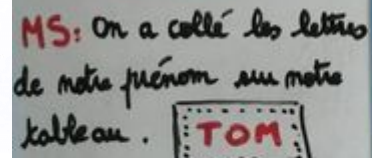 MS: On a collé les lettres
de notre prénom sur notre
tableau. TOM